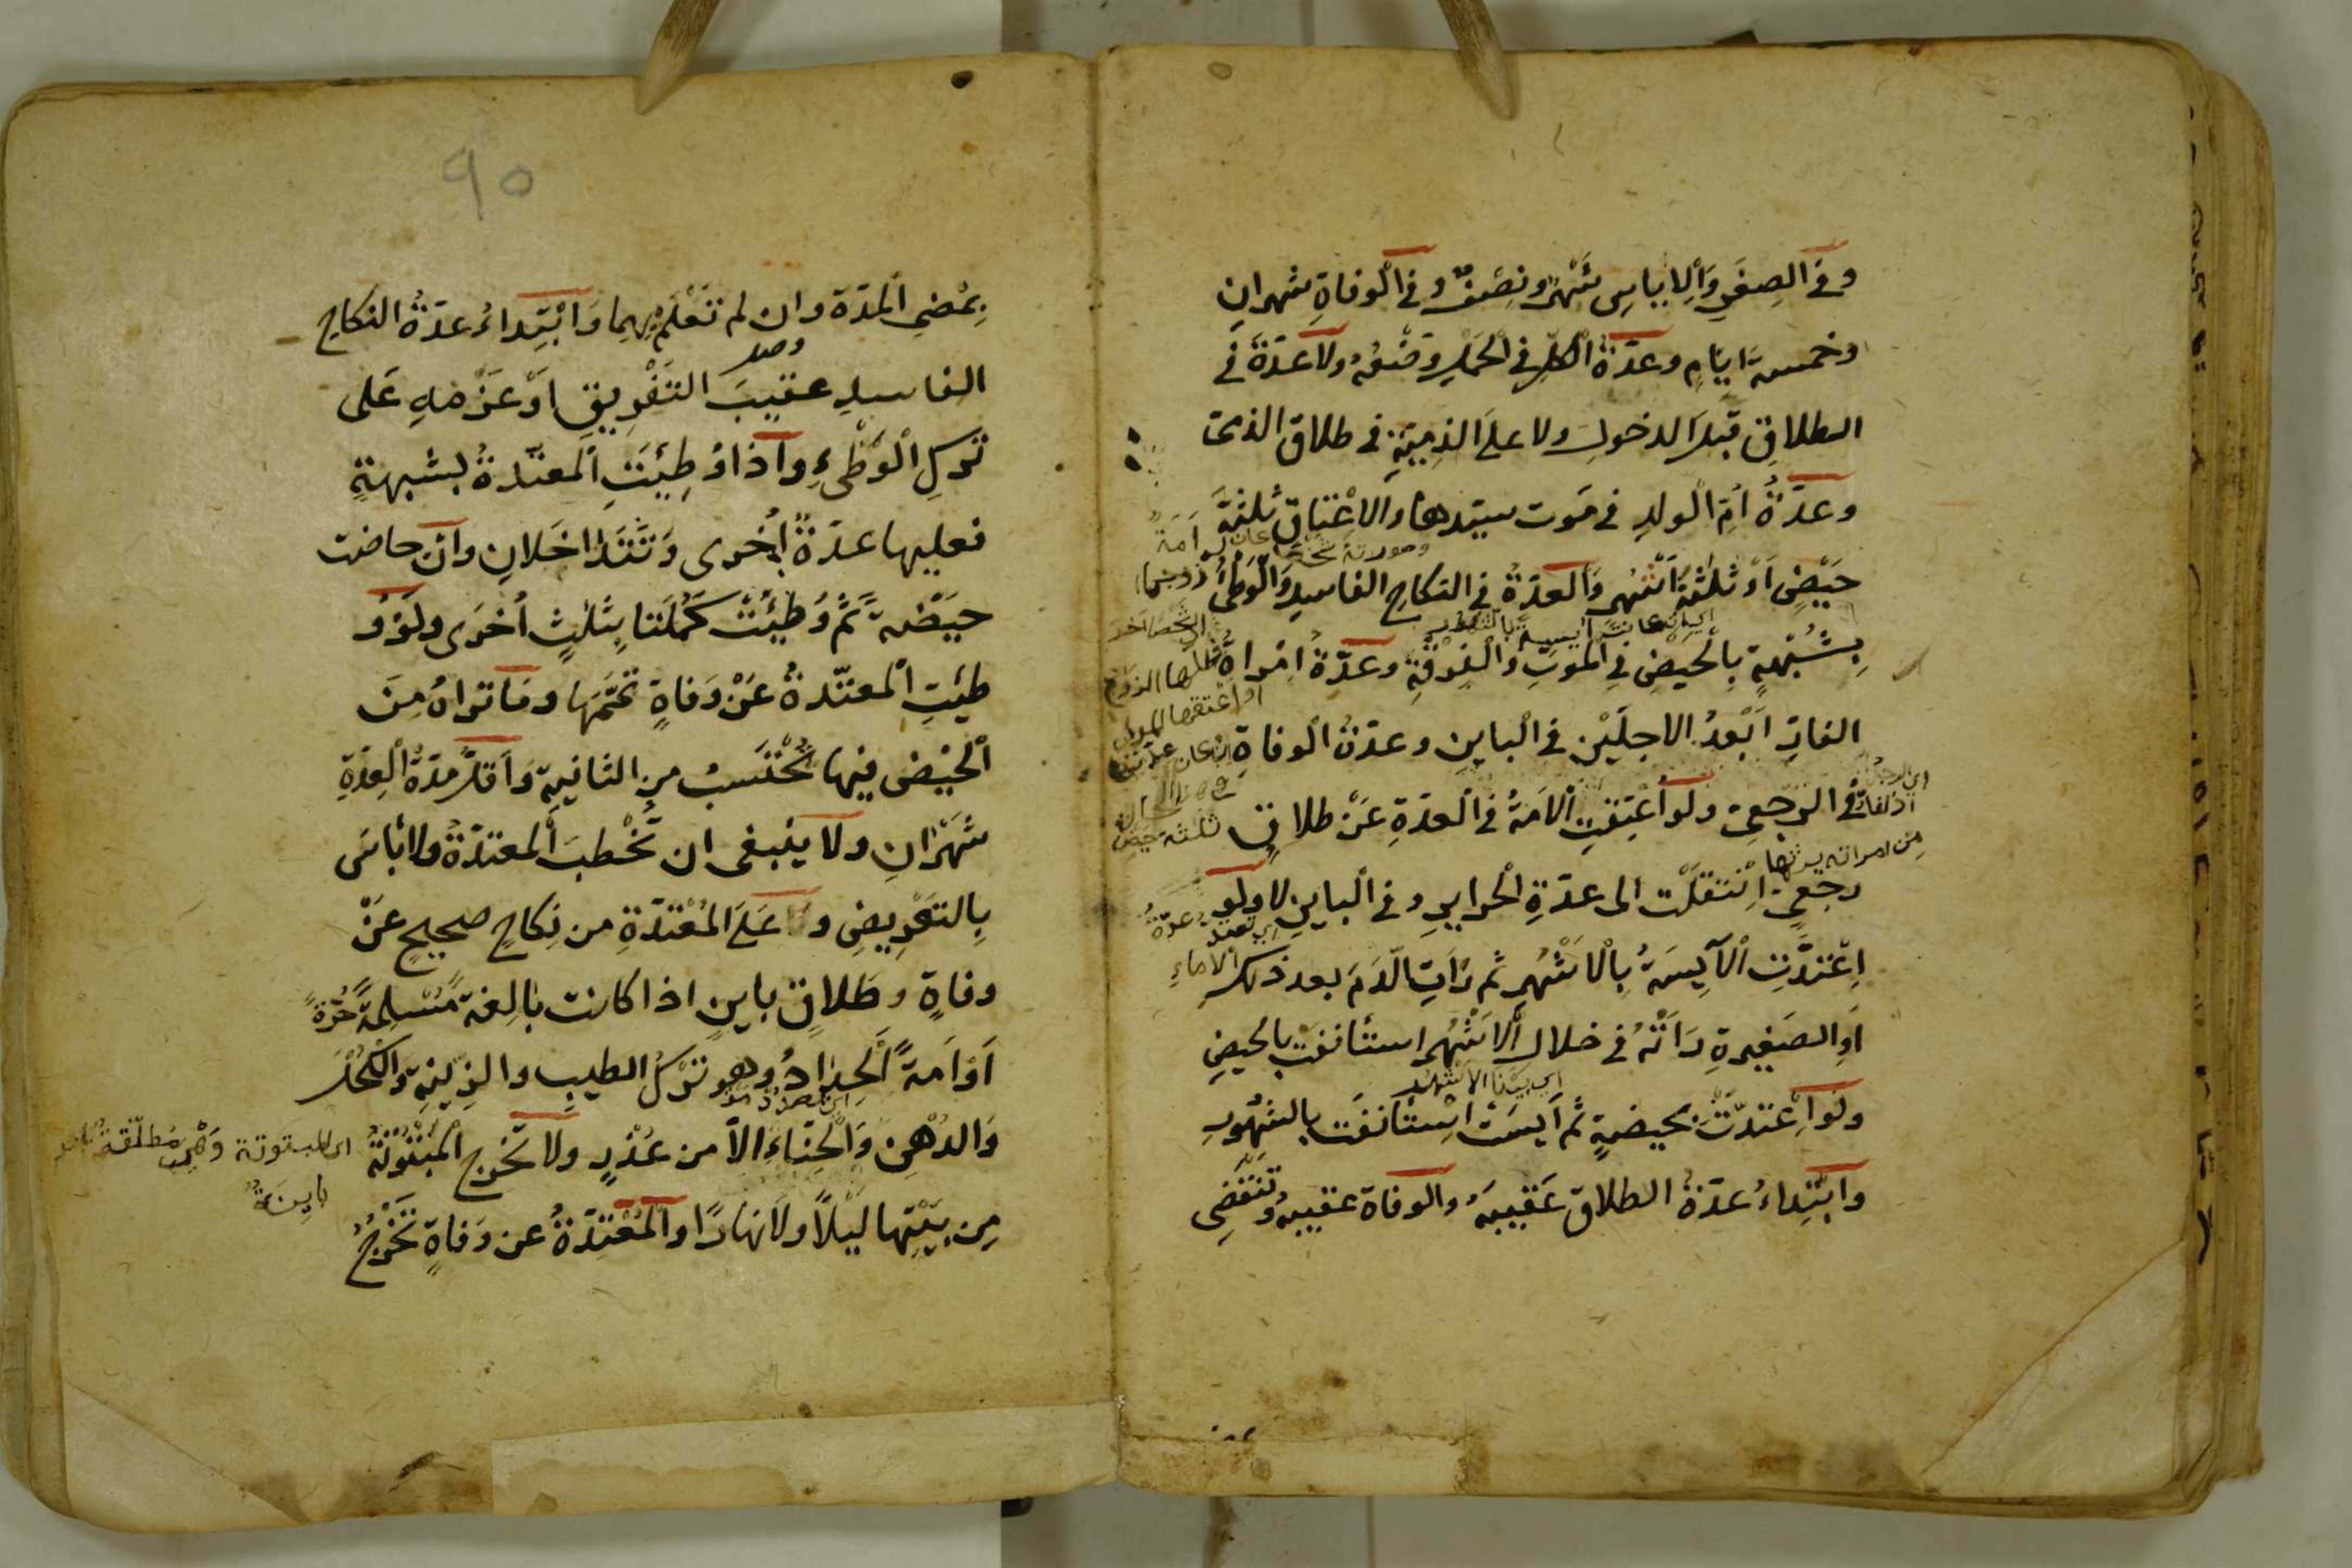 وفي الصِغَرِ وَالإياسِ شَهْرٌ ونِصْفٌ وفي الْوفاةِ شهرانِ
وخمسة ايامٍ وعدّةُ الكلِّ في الحَمْلِ وَضْعُهُ ولا عدّةَ في
الطلاقِ قبلَ الدخولِ ولا علَى الذِمِّيَّةِ في طلاق الذمى
وعدّةُ اُمّ الْولدِ في مَوت سيّدها والاِعْتاق ثلثةُ
حِيَضٍ اَوْ ثلثةُ اَشْهُرٍ وَالعدّةُ في النكاحِ الفاسِدِ وَالْوَطْىُ
بِشُبْهةٍ بِالْحيضِ فِي الْموتِ وَالْفُرْقَةِ وعدّةُ امْراةُ
الفارِّ اَبْعدُ الاجلَيْنِ في الْباينِ وعدّةُ الْوفاةِ
في الرَجْعىِّ ولو اُعْتِقتِ الْاَمَةُ في الْعدّةِ عَنْ طلاقٍ
رجعىٍّ انْتقلَتْ الى عدّةِ الْحرايرِ وفي الْباينِ لا ولو
اِعْتدّتِ الْآيِسَةُ بِالْاَشْهُرِ ثم رَاَتِ الدّمَ بعد ذلك
اَوِ الصَغِيرةِ رَاَتْهُ في خلالِ الْاَشْهُرِ استأنفَتْ بالحيضِ
ولَو اِعْتدّتْ بحيضةٍ ثُم اَيِسَتْ اِسْتأنَفَتْ بالشُهُورِ
وابْتِداءُ عدّةُ الطلاقِ عَقيبَهُ والوفاة عقيبهُ وتَنْقَضِى
وصورته
اَمَة
زوجها
ان كانت آيسة بالشهور
الى شخص آخر
طلقها الزوج
او اعتقها المولى
ثلثة حيض
من امراته يرثها
اي تعتد عدة
الاماء
٩٥
بِمُضِى الْمدّة وان لم تَعْلَمْ بِهِما وَابْتِداءُ عدّةُ النكاحِ
الفاسدِ عقيبَ التَفْريقِ اَوْ عَزْمِهِ عَلى
تركِ الْوَطْىءِ واذا وُطِئَتِ الْمعتدّةُ بشبهةٍ
فعليها عدّةٌ اُخرى وَتَتَداخَلانِ وان حاضت
حيَضْةً ثُمّ وُطِئَتْ كَمَّلَتْها بِثلثٍ اُخرَى ولَوْ وُ
طئتِ الْمعتدّةُ عَنْ وَفاةٍ تُتَمِّمَها وما تراهُ مِنَ
الْحَيْضِ فيها تُحْتَسَبُ مِن الثانيةِ وَاَقلُّ مدّةُ الْعِدّةِ
شَهْرانِ ولا ينبغى ان تُخْطبَ الْمعتدّةُ ولا بأسَ
بِالتَعْرِيضِ و عَلَى المُعْتدّةِ من نِكاحٍ صحيحٍ عَنْ
وفاةٍ وطَلاقٍ باينٍ اذا كانت بالِغةً مُسْلِمَةً حُرّةً
اَوْ اَمةً الْحِدادُ وهو تركُ الطيبِ والزينةِ وَالْكُحْلِ
وَالدُهْنِ وَالْحِنّاءِ الاّ من عُذْرٍ ولا تَخْرج الْمَبْتُوتَةُ
مِن بيْتِها لَيْلاً ولا نَهارًا والْمُعْتدّةُ عن وَفاةٍ تَخْرُجُ
اى المبتوتة وهى مطلّقة
باينة